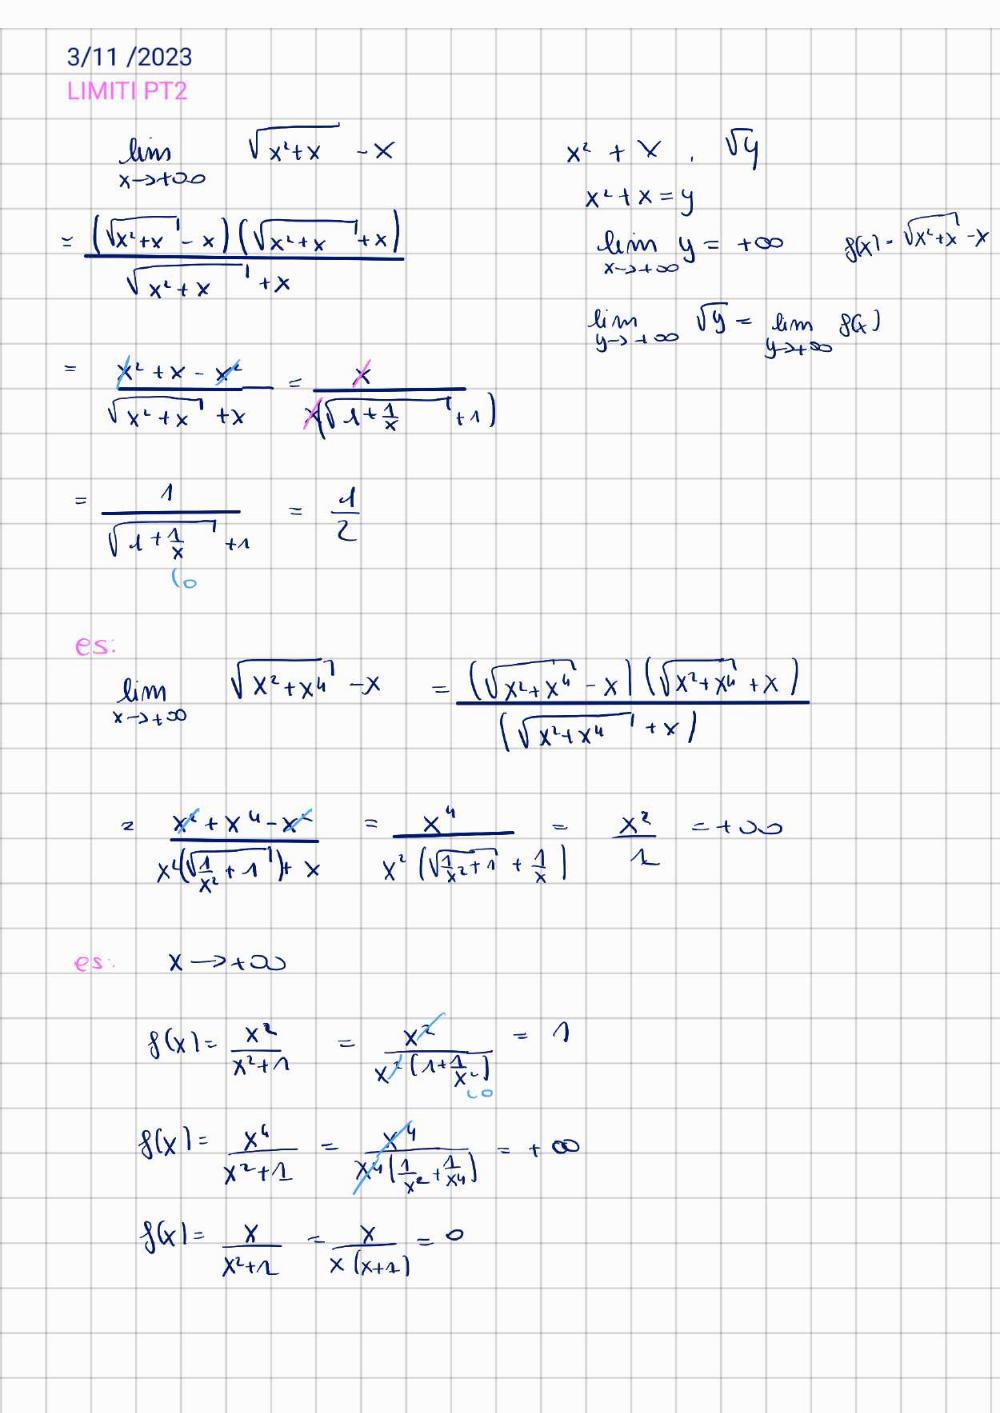 3/11 /2023
LIMITI PT2
lim x→+∞ √(x²+x) - x
= (√(x²+x) - x)(√(x²+x) + x) / √(x²+x) + x
= x² + x - x² / √(x²+x) + x = x / x(√(1+1/x) + 1)
= 1 / √(1+1/x) + 1 = 1/2
(0
x² + x , √y
x²+x = y
lim x→+∞ y = +∞ f(x) = √(x²+x) - x
lim y→+∞ √y = lim y→+∞ f(x)
es:
lim x→+∞ √(x²+x⁴) - x = (√(x²+x⁴) - x)(√(x²+x⁴) + x) / (√(x²+x⁴) + x)
= x² + x⁴ - x² / x²(√(1/x² + 1)) + x = x⁴ / x²(√(1/x²+1) + 1/x) = x²/1 = +∞
es: x→+∞
f(x) = x² / x²+1 = x² / x²(1+1/x²) = 1
(0
f(x) = x⁴ / x²+1 = x⁴ / x⁴(1/x² + 1/x⁴) = +∞
f(x) = x / x²+1 = x / x(x+1) = 0